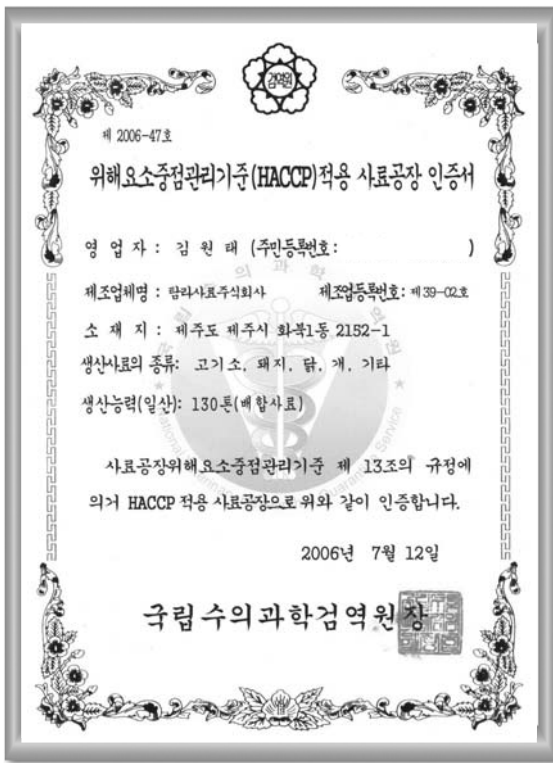 검역원
제 2006-47호
위해요소중점관리기준(HACCP)적용 사료공장 인증서
영 업 자 : 김 원 태 (주민등록번호: )
제조업체명 : 탐라사료주식회사 제조업등록번호: 제39-02호
소 재 지 : 제주도 제주시 화북1동 2152-1
생산사료의 종류: 고기소, 돼지, 닭, 개, 기타
생산능력(일산): 130톤(배합사료)
사료공장위해요소중점관리기준 제 13조의 규정에
의거 HACCP 적용 사료공장으로 위와 같이 인증합니다.
2006년 7월 12일
국립수의과학검역원장